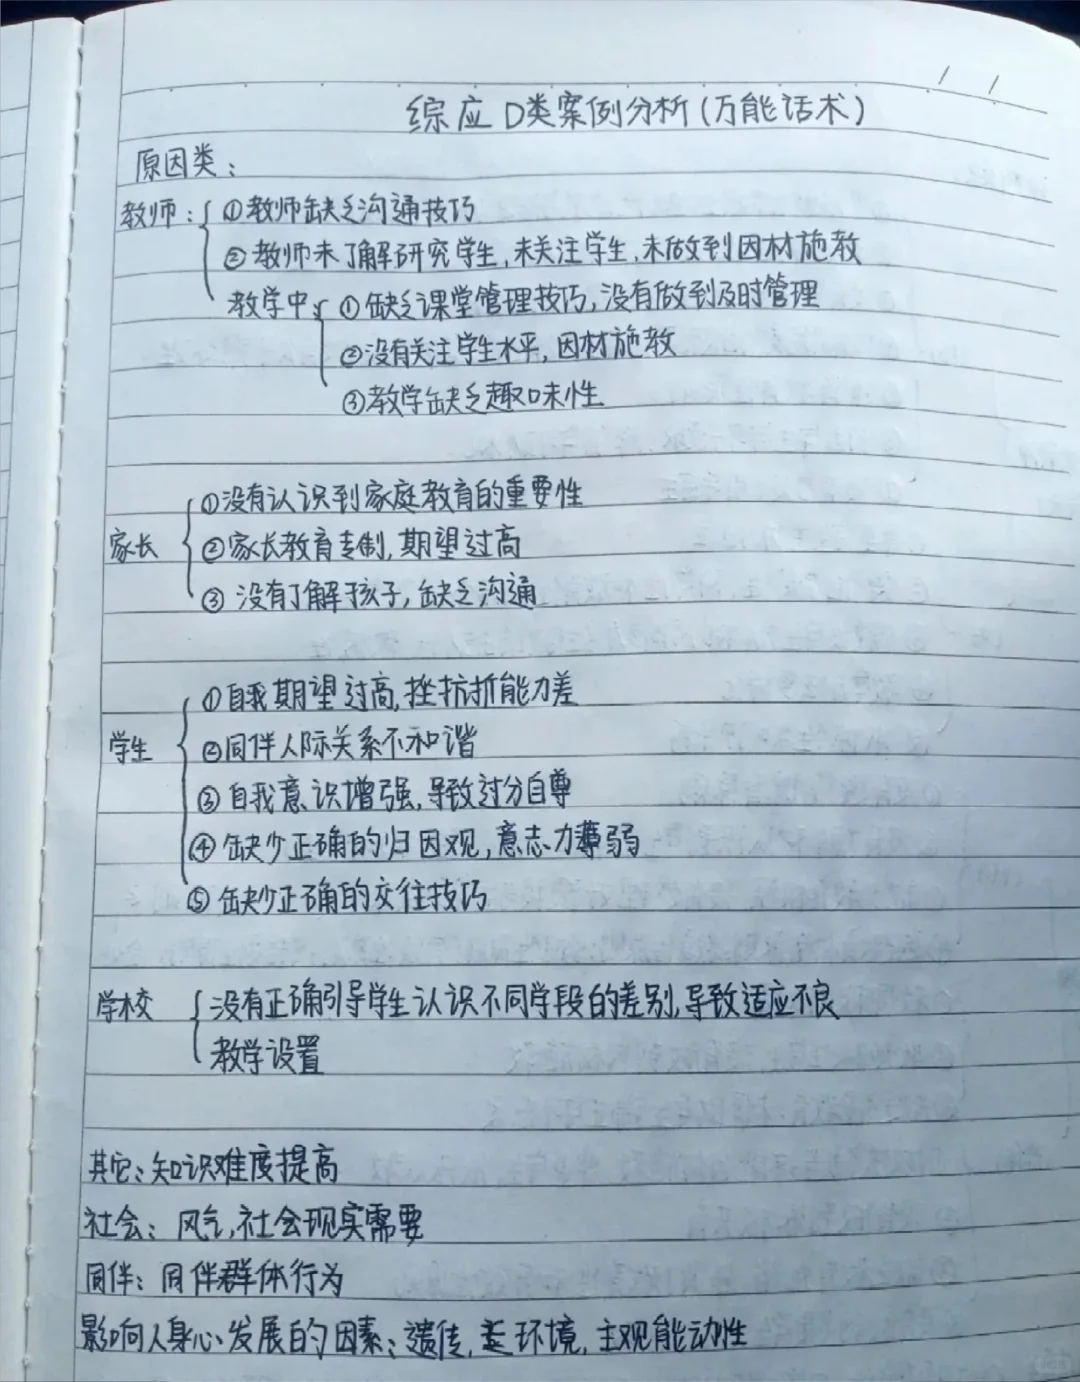 综应D类案例分析(万能话术)
原因类:
教师: ①教师缺乏沟通技巧
②教师未了解研究学生,未关注学生,未做到因材施教
教学中 ①缺乏课堂管理技巧,没有做到及时管理
②没有关注学生水平,因材施教
③教学缺乏趣味性
①没有认识到家庭教育的重要性
家长 ②家长教育专制,期望过高
③ 没有了解孩子,缺乏沟通
①自我期望过高,挫抗折能力差
学生 ②同伴人际关系不和谐
③ 自我意识增强,导致过分自尊
④ 缺少正确的归因观,意志力薄弱
⑤ 缺少正确的交往技巧
学校 没有正确引导学生认识不同学段的差别,导致适应不良
教学设置
其它:知识难度提高
社会: 风气,社会现实需要
同伴: 同伴群体行为
影响人身心发展的因素:遗传,环境,主观能动性